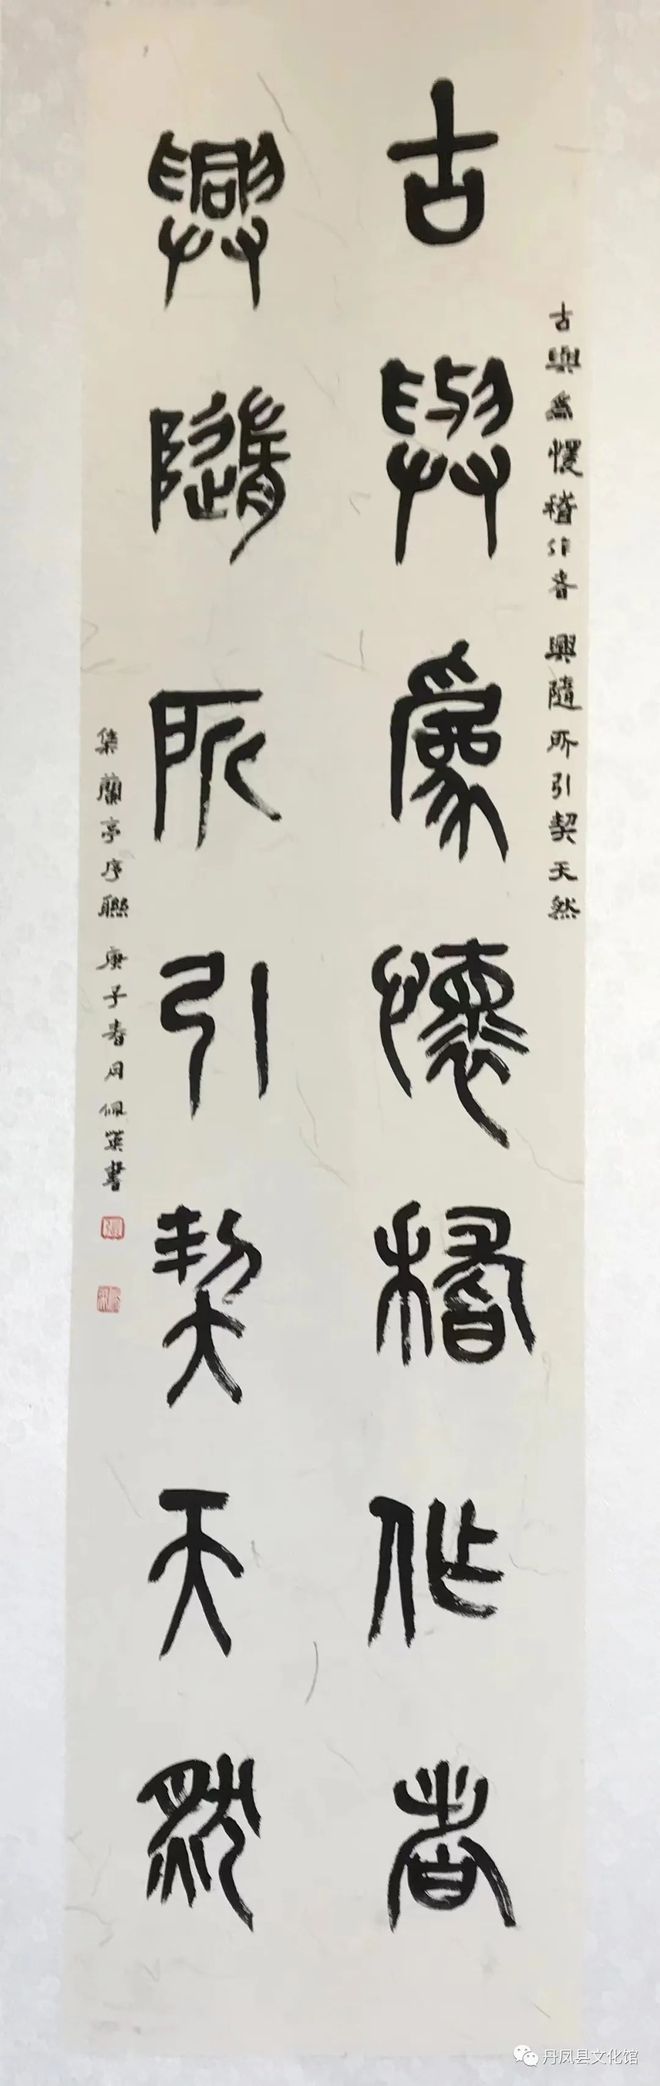 古與爲懷稽作者 興隨所引契天然
古與爲懷稽作者
興隨所引契天然
集蘭亭序聯 庚子春月佩英書
丹凤县文化馆